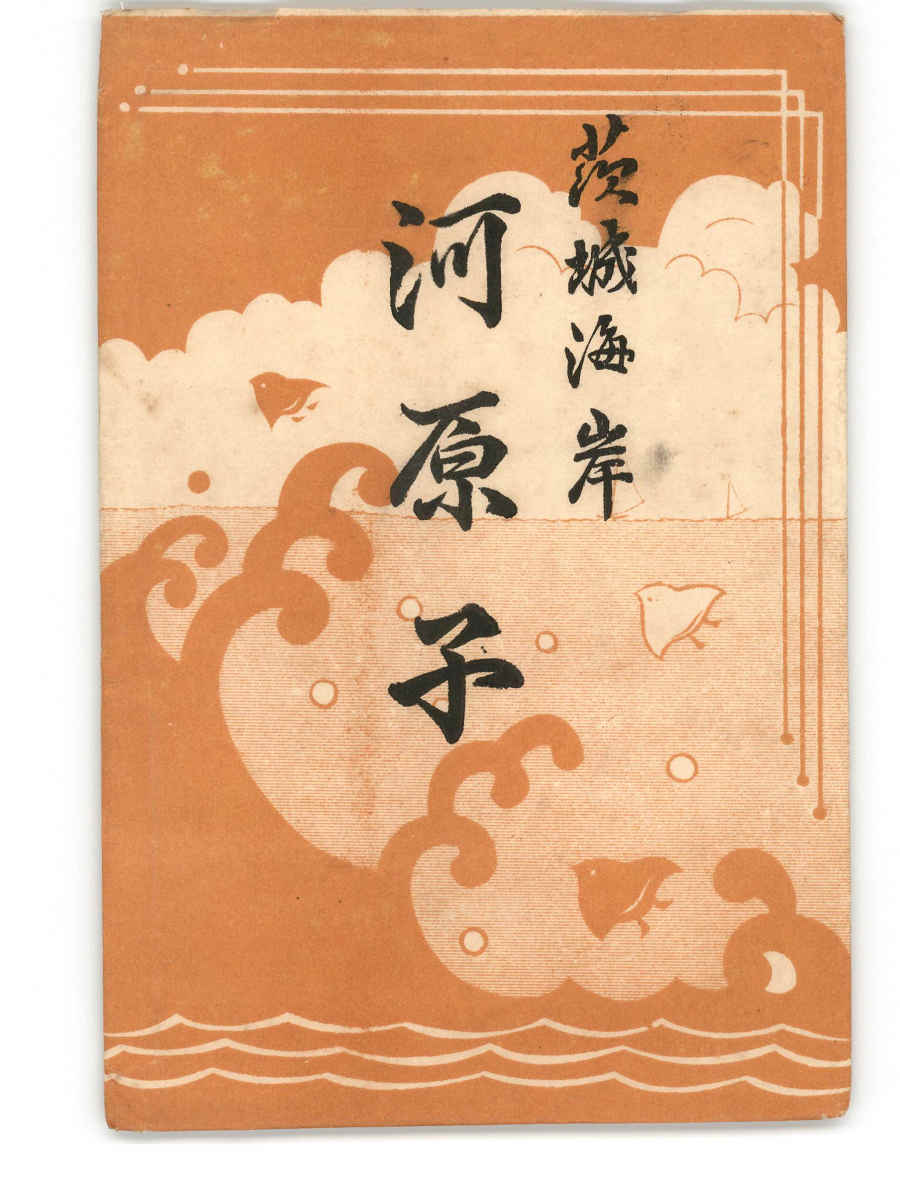 茨城海岸
河原子